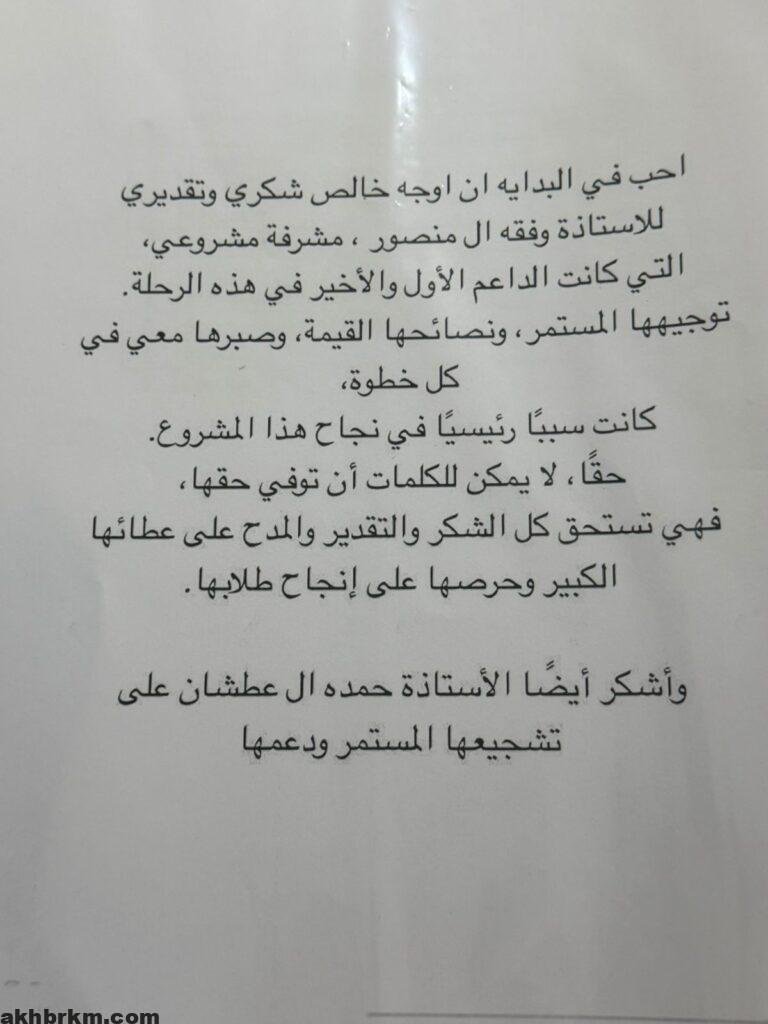 احب في البدايه ان اوجه خالص شكري وتقديري
للاستاذة وفقه ال منصور ، مشرفة مشروعي،
التي كانت الداعم الأول والأخير في هذه الرحلة.
توجيهها المستمر، ونصائحها القيمة، وصبرها معي في
كل خطوة،
كانت سببًا رئيسيًا في نجاح هذا المشروع.
حقًا، لا يمكن للكلمات أن توفي حقها،
فهي تستحق كل الشكر والتقدير والمدح على عطائها
الكبير وحرصها على إنجاح طلابها.
وأشكر أيضًا الأستاذة حمده ال عطشان على
تشجيعها المستمر ودعمها
akhbrkm.com